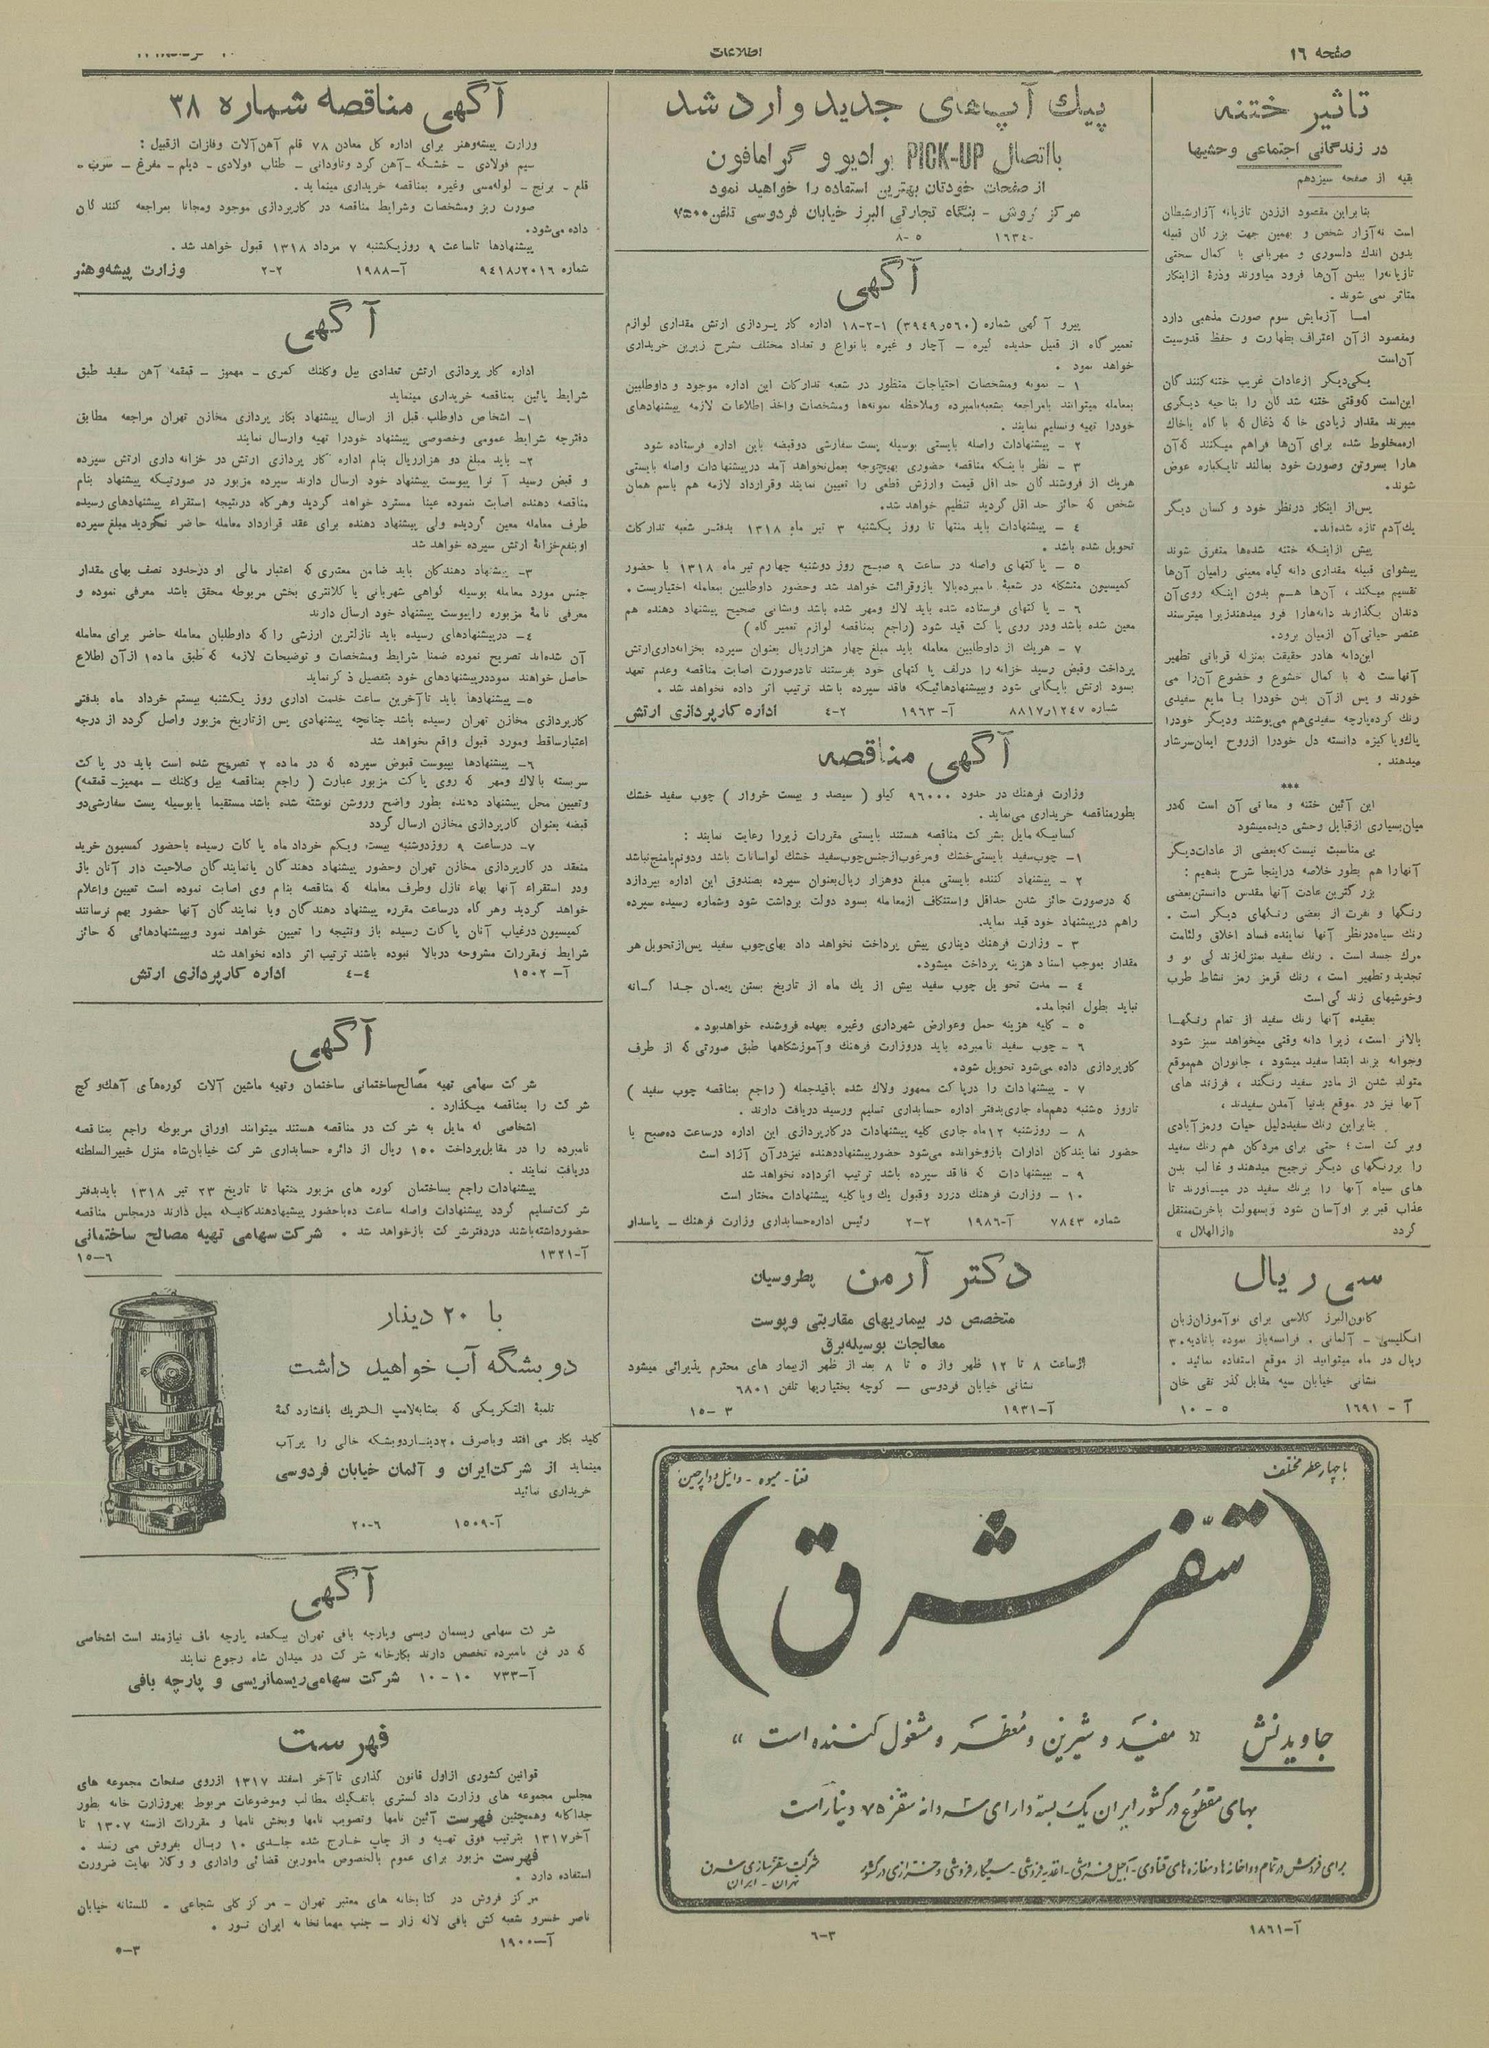 صفحه ۱۶
اطلاعات
تاثیر ختنه
در زندگانی اجتماعی وحشیها
بقیه از صفحه سیزدهم
بنابراین مقصود اززدن تازیانه آزارشیطان
است نه‌آزار شخص و بهمین جهت بزرگان قبیله
بدون اندك دلسوزی و مهربانی با کمال سختی
تازیانه‌را ببدن آن‌ها فرود میاورند وذرۀ ازاینکار
متاثر نمی شوند .
امـا آزمایش سوم صورت مذهبی دارد
ومقصود ازآن اعتراف بطهارت و حفظ قدوسیت
آن‌است
یکی‌دیگر ازعادات غریب ختنه‌کنندگان
این‌است که‌وقتی ختنه شدگان را بناحیه دیگری
میبرند مقدار زیادی خاکه ذغال که با گاه باخاك
اره‌مخلوط شده برای آن‌ها فراهم میکنند که‌آن
هارا بسروتن وصورت خود بمالند تایکباره عوض
شوند.
پس‌از اینکار درنظر خود و کسان دیگر
یك‌آدم تازه شده‌اند.
پیش ازاینکه ختنه شده‌ها متفرق شوند
پیشوای قبیله مقداری دانه گیاه معینی رامیان آن‌ها
تقسیم میکند ، آن‌ها هـم بدون اینکه روی‌آن
دندان بگذارند دانه‌هارا فرو میدهندزیرا میترسند
عنصر حیاتی‌آن ازمیان برود.
این‌دانه هادر حقیقت بمنزله قربانی تطهیر
آنهاست که با کمال خشوع و خضوع آن‌را می
خورند و پس ازآن بدن خودرا بـا مایع سفیدی
رنك کرده‌پارچه سفیدی‌هم می‌پوشند ودیگر خودرا
پاك‌وپاکیزه دانسته دل خودرا ازروح ایمان‌سرشار
میدهند .
***
این آئین ختنه و معانی آن است که‌در
میان‌بسیاری ازقبایل وحشی دیده‌میشود
بی مناسبت نیست که‌بعضی از عادات‌دیگر
آنهاراهم بطور خلاصه دراینجا شرح بدهیم :
بزرگترین عادت آنها مقدس دانستن‌بعضی
رنگها و نفرت از بعضی رنگهای دیگر است .
رنك سیاه‌درنظر آنها نماینده فساد اخلاق ولئامت
مرك جسد است . رنك سفید بمنزله‌زندگی نو و
تجدید وتطهیر است ، رنك قرمز رمز نشاط طرب
وخوشیهای زندگی است
بعقیده آنها رنك سفید از تمام رنگهـا
بالاتر است ، زیرا دانه وقتی میخواهد سبز شود
وجوانه بزند ابتدا سفید میشود ، جانوران هم‌موقع
متولد شدن از مادر سفید رنگند ، فرزند های
آنها نیز در موقع بدنیا آمدن سفیدند ،
بنابراین رنك سفیددلیل حیات ورمزآبادی
وبرکت است ؛ حتی برای مردگان هم رنك سفید
را بررنگهای دیگر ترجیح میدهند و غالب بدن
های سیاه آنها را برنك سفید در میـاورند تا
عذاب قبر بر اوآسان شود وبسهولت باخرت‌منتقل
گردد
«ازالهلال »
سی ریال
کانون‌البرز کلاسی برای نوآموزان‌زبان
انگلیسی - آلمانی . فرانسه‌باز نموده باتادیه ۳۰
ریال در ماه میتوانید از موقع استفاده نمائید .
نشانی خیابان سپه مقابل گذر تقی خان
آ - ۱۶۹۱
۵ - ۱۰
پیك آپ‌های جدید وارد شد
بااتصال PICK-UP برادیو و گرامافون
از صفحات خودتان بهترین استفاده را خواهید نمود
مرکز فروش - بنگاه تجارتی البرز خیابان فردوسی تلفن ۷۵۰۰
۱۶۳٤۰
۵-۸
آگهی
پیرو آگهی شماره (۳۹٤۹٫۵۶۰) ۱-۲-۱۸ اداره کارپردازی ارتش مقداری لوازم
تعمیرگاه از قبیل حدیده گیره - آچار و غیره باانواع و تعداد مختلف بشرح زیرین خریداری
خواهد نمود .
۱ - نمونه ومشخصات احتیاجات منظور در شعبه تدارکات این اداره موجود و داوطلبین
بمعامله میتوانند بامراجعه بشعبه‌نامبرده وملاحظه نمونه‌ها ومشخصات واخذ اطلاعات لازمه پیشنهادهای
خودرا تهیه وتسلیم نمایند .
۲ - پیشنهادات واصله بایستی بوسیله پست سفارشی دوقبضه باین اداره فرستاده شود
۳ - نظر باینکه مناقصه حضوری بهیچوجه بعمل‌نخواهد آمد درپیشنهادات واصله بایستی
هریك از فروشندگان حد اقل قیمت وارزش قطعی را تعیین نمایند وقرارداد لازمه هم باسم همان
شخص که حائز حد اقل گردید تنظیم خواهد شد.
٤ - پیشنهادات باید منتها تا روز یکشنبه ۳ تیر ماه ۱۳۱۸ بدفتـر شعبه تدارکات
تحویل شده باشد .
۵ - پاکتهای واصله در ساعت ۹ صبـح روز دوشنبه چهارم تیر ماه ۱۳۱۸ با حضور
کمیسیون متشکله در شعبۀ نامبرده‌بالا بازوقرائت خواهد شد وحضور داوطلبین بمعامله اختیاریست .
۶ - پاکتهای فرستاده شده باید لاك ومهر شده باشد ونشانی صحیح پیشنهاد دهنده هم
معین شده باشد ودر روی پاکت قید شود (راجع بمناقصه لوازم تعمیرگاه )
۷ - هریك از داوطلبین معامله باید مبلغ چهار هزارریال بعنوان سپرده بخزانه‌داری‌ارتش
پرداخت وقبض رسید خزانه را درلف پاکتهای خود بفرستند تادرصورت اصابت مناقصه وعدم تعهد
بسود ارتش بایگانی شود وبپیشنهادهائیکه فاقد سپرده باشد ترتیب اثر داده نخواهد شد .
شماره ۸۸۱۷٫۱۲٤۷
آ - ۱۹۶۳
۲-٤
اداره کارپردازی ارتش
آگهی مناقصه
وزارت فرهنك در حدود ۹۶۰۰۰ کیلو ( سیصد و بیست خروار ) چوب سفید خشك
بطورمناقصه خریداری می‌نماید .
کسانیکه مایل بشرکت مناقصه هستند بایستی مقررات زیررا رعایت نمایند :
۱- چوب‌سفید بایستی‌خشك ومرغوب‌ازجنس‌چوب‌سفید خشك لواسانات باشد ودونیم‌بامنج‌نباشد
۲ - پیشنهاد کننده بایستی مبلغ دوهزار ریال‌بعنوان سپرده بصندوق این اداره بپردازد
که درصورت حائز شدن حداقل واستنکاف ازمعامله بسود دولت برداشت شود وشماره رسیده سپرده
راهم درپیشنهاد خود قید نماید.
۳ - وزارت فرهنك دیناری پیش پرداخت نخواهد داد بهای‌چوب سفید پس‌ازتحویل هر
مقدار بموجب اسناد هزینه پرداخت میشود.
٤ - مدت تحویل چوب سفید بیش از یك ماه از تاریخ بستن پیمـان جـداگـانه
نباید بطول انجامد.
۵ - کلیه هزینه حمل وعوارض شهرداری وغیره بعهده فروشنده خواهدبود.
۶ - چوب سفید نامبرده باید دروزارت فرهنك وآموزشگاهها طبق صورتی که از طرف
کارپردازی داده می‌شود تحویل شود.
۷ - پیشنهادات را درپاکت ممهور ولاك شده باقیدجمله ( راجع بمناقصه چوب سفید )
تاروز ۵شنبه دهم‌ماه جاری‌بدفتر اداره حسابداری تسلیم ورسید دریافت دارند .
۸ - روزشنبه ۱۲ماه جاری کلیه پیشنهادات درکارپردازی این اداره درساعت ده‌صبح با
حضور نمایندگان ادارات بازوخوانده می‌شود حضورپیشنهاددهنده نیزدرآن آزاد است
۹ - بپیشنهادات که فاقد سپرده باشد ترتیب اثرداده نخواهد شد
۱۰ - وزارت فرهنك دررد وقبول یك ویاکلیه پیشنهادات مختار است
شماره ۷۸٤۳
آ-۱۹۸۶
۲-۲
رئیس اداره‌حسابداری وزارت فرهنك - پاسدار
دکتر آرمن پطروسیان
متخصص در بیماریهای مقاربتی وپوست
معالجات بوسیله‌برق
ازساعت ۸ تا ۱۲ ظهر واز ۵ تا ۸ بعد از ظهر ازبیمار های محترم پذیرائی میشود
نشانی خیابان فردوسی - کوچه بختیاریها تلفن ۶۸۰۱
آ-۱۹۳۱
۳-۱۵
با چهار عطر مختلف
نعنا - میوه - وانیل و دارچین
(سقّز شرق)
جاویدنش « مفید و شیرین و معطر و مشغول کننده است »
بهای مقطوع در کشور ایران یک بسته دارای سه دانه سقز ۷۵ دینار است
برای فروش در تمام دواخانه‌ها و مغازه‌های قنادی - آجیل فروشی - اغذیه فروشی - سیگار فروشی و خرازی در کشور
شرکت سقزسازی شرق
تهران - ایران
آ-۱۸۶۱
۳-۶
آگهی مناقصه شماره ۳۸
وزارت پیشه‌وهنر برای اداره کل معادن ۷۸ قلم آهن‌آلات وفلزات ازقبیل :
سیم فولادی - خشکه -آهن گرد وناودانی - طناب فولادی - دیلم - مفرغ - سرب -
قلم - برنج - لوله‌مسی وغیره بمناقصه خریداری مینماید .
صورت ریز ومشخصات وشرایط مناقصه در کارپردازی موجود ومجانا بمراجعه کنندگان
داده می‌شود.
پیشنهادها تاساعت ۹ روزیکشنبه ۷ مرداد ۱۳۱۸ قبول خواهد شد .
شماره ۹٤۱۸٫۲۰۱۶
آ-۱۹۸۸
۲-۲
وزارت پیشه‌وهنر
آگهی
اداره کارپردازی ارتش تعدادی بیل وکلنك کمری - مهمیز - قمقمه آهن سفید طبق
شرایط پائین بمناقصه خریداری مینماید
۱- اشخاص داوطلب قبل از ارسال پیشنهاد بکارپردازی مخازن تهران مراجعه مطابق
دفترچه شرایط عمومی وخصوصی پیشنهاد خودرا تهیه وارسال نمایند
۲- باید مبلغ دو هزارریال بنام اداره کارپردازی ارتش در خزانه داری ارتش سپرده
و قبض رسید آنرا پیوست پیشنهاد خود ارسال دارند سپرده مزبور در صورتیکه پیشنهاد بنام
مناقصه دهنده اصابت ننموده عینا مسترد خواهد گردید وهرگاه درنتیجه استقراء پیشنهادهای رسیده
طرف معامله معین گردیده ولی پیشنهاد دهنده برای عقد قرارداد معامله حاضر نگردید مبلغ سپرده
اوبنفع‌خزانۀ ارتش سپرده خواهد شد
۳- پیشنهاد دهندگان باید ضامن معتبری که اعتبار مالی او درحدود نصف بهای مقدار
جنس مورد معامله بوسیله گواهی شهربانی یا کلانتری بخش مربوطه محقق باشد معرفی نموده و
معرفی نامۀ مزبوره راپیوست پیشنهاد خود ارسال دارند
٤- درپیشنهادهای رسیده باید نازلترین ارزشی راکه داوطلبان معامله حاضر برای معامله
آن شده‌اند تصریح نموده ضمنا شرایط ومشخصات و توضیحات لازمه که طبق ماده۱ ازآن اطلاع
حاصل خواهند نموددرپیشنهادهای خود بتفصیل ذکرنماید
۵- پیشنهادها باید تاآخرین ساعت خدمت اداری روز یکشنبه بیستم خرداد ماه بدفتر
کارپردازی مخازن تهران رسیده باشد چنانچه پیشنهادی پس ازتاریخ مزبور واصل گردد از درجه
اعتبارساقط ومورد قبول واقع نخواهد شد
۶- پیشنهادها بپیوست قبوض سپرده که در ماده ۲ تصریح شده است باید در پاکت
سربسته بالاك ومهر که روی پاکت مزبور عبارت ( راجع بمناقصه بیل وکلنك - مهمیز- قمقمه)
وتعیین محل پیشنهاد دهنده بطور واضح وروشن نوشته شده باشد مستقیما یابوسیله پست سفارشی‌دو
قبضه بعنوان کارپردازی مخازن ارسال گردد
۷- درساعت ۹ روزدوشنبه بیست ویکم خرداد ماه پاکات رسیده باحضور کمیسیون خرید
منعقد در کارپردازی مخازن تهران وحضور پیشنهاد دهندگان یانمایندگان صلاحیت دار آنان باز
ودر استقراء آنها بهاء نازل وطرف معامله که مناقصه بنام وی اصابت نموده است تعیین واعلام
خواهد گردید وهرگاه درساعت مقرره پیشنهاد دهندگان ویا نمایندگان آنها حضور بهم نرسانند
کمیسیون درغیاب آنان پاکات رسیده باز ونتیجه را تعیین خواهد نمود وبپیشنهادهائی که حائز
شرایط ومقررات مشروحه دربالا نبوده باشند ترتیب اثر داده نخواهد شد
آ- ۱۵۰۲
٤-٤
اداره کارپردازی ارتش
آگهی
شرکت سهامی تهیه مصالح‌ساختمانی ساختمان وتهیه ماشین آلات کوره‌های آهك‌وگچ
شرکت را بمناقصه میگذارد .
اشخاصی که مایل به شرکت در مناقصه هستند میتوانند اوراق مربوطه راجع بمناقصه
نامبرده را در مقابل‌پرداخت ۱۵۰ ریال از دائره حسابداری شرکت خیابان‌شاه منزل خبیرالسلطنه
دریافت نمایند .
پیشنهادات راجع بساختمان کوره های مزبور منتها تا تاریخ ۲۳ تیر ۱۳۱۸ بایدبدفتر
شرکت‌تسلیم گردد پیشنهادات واصله ساعت ده‌باحضور پیشهادهندگانیکه میل دارند درمجلس مناقصه
حضورداشته‌باشند دردفترشرکت بازخواهد شد .
شرکت سهامی تهیه مصالح ساختمانی
آ-۱۳۲۱
۶-۱۵
با ۲۰ دینار
دوبشگه آب خواهید داشت
تلمبۀ التکریکی که بمثابه‌لامپ الکتریك بافشاردگمۀ
کلید بکار می افتد وباصرف ۲۰دینـاردوبشکه خالی را پرآب
مینماید از شرکت‌ایران و آلمان خیابان فردوسی
خریداری نمائید
آ-۱۵۰۹
۶-۲۰
آگهی
شرکت سهامی ریسمان ریسی وپارچه بافی تهران بیکعده پارچه باف نیازمند است اشخاصی
که در فن نامبرده تخصص دارند بکارخانه شرکت در میدان شاه رجوع نمایند
آ-۷۳۳
۱۰-۱۰
شرکت سهامی‌ریسمانریسی و پارچه بافی
فهرست
قوانین کشوری ازاول قانون گذاری تاآخر اسفند ۱۳۱۷ ازروی صفحات مجموعه های
مجلس مجموعه های وزارت دادگستری باتفکیك مطالب وموضوعات مربوط بهروزارت خانه بطور
جداگانه وهمچنین فهرست آئین نامها وتصویب نامها وبخش نامها و مقررات ازسنه ۱۳۰۷ تا
آخر۱۳۱۷ بترتیب فوق تهیه و از چاپ خارج شده جلدی ۱۰ ریال بفروش می رسد .
فهرست مزبور برای عموم بالخصوص مامورین قضائی واداری و وکلا نهایت ضرورت
استفاده دارد .
مرکز فروش در کتابخانه های معتبر تهران - مرکز کلی شجاعی - گلستانه خیابان
ناصر خسرو شعبه کش بافی لاله زار - جنب مهمانخانه ایران نـور .
آ-۱۹۰۰
۳-۵